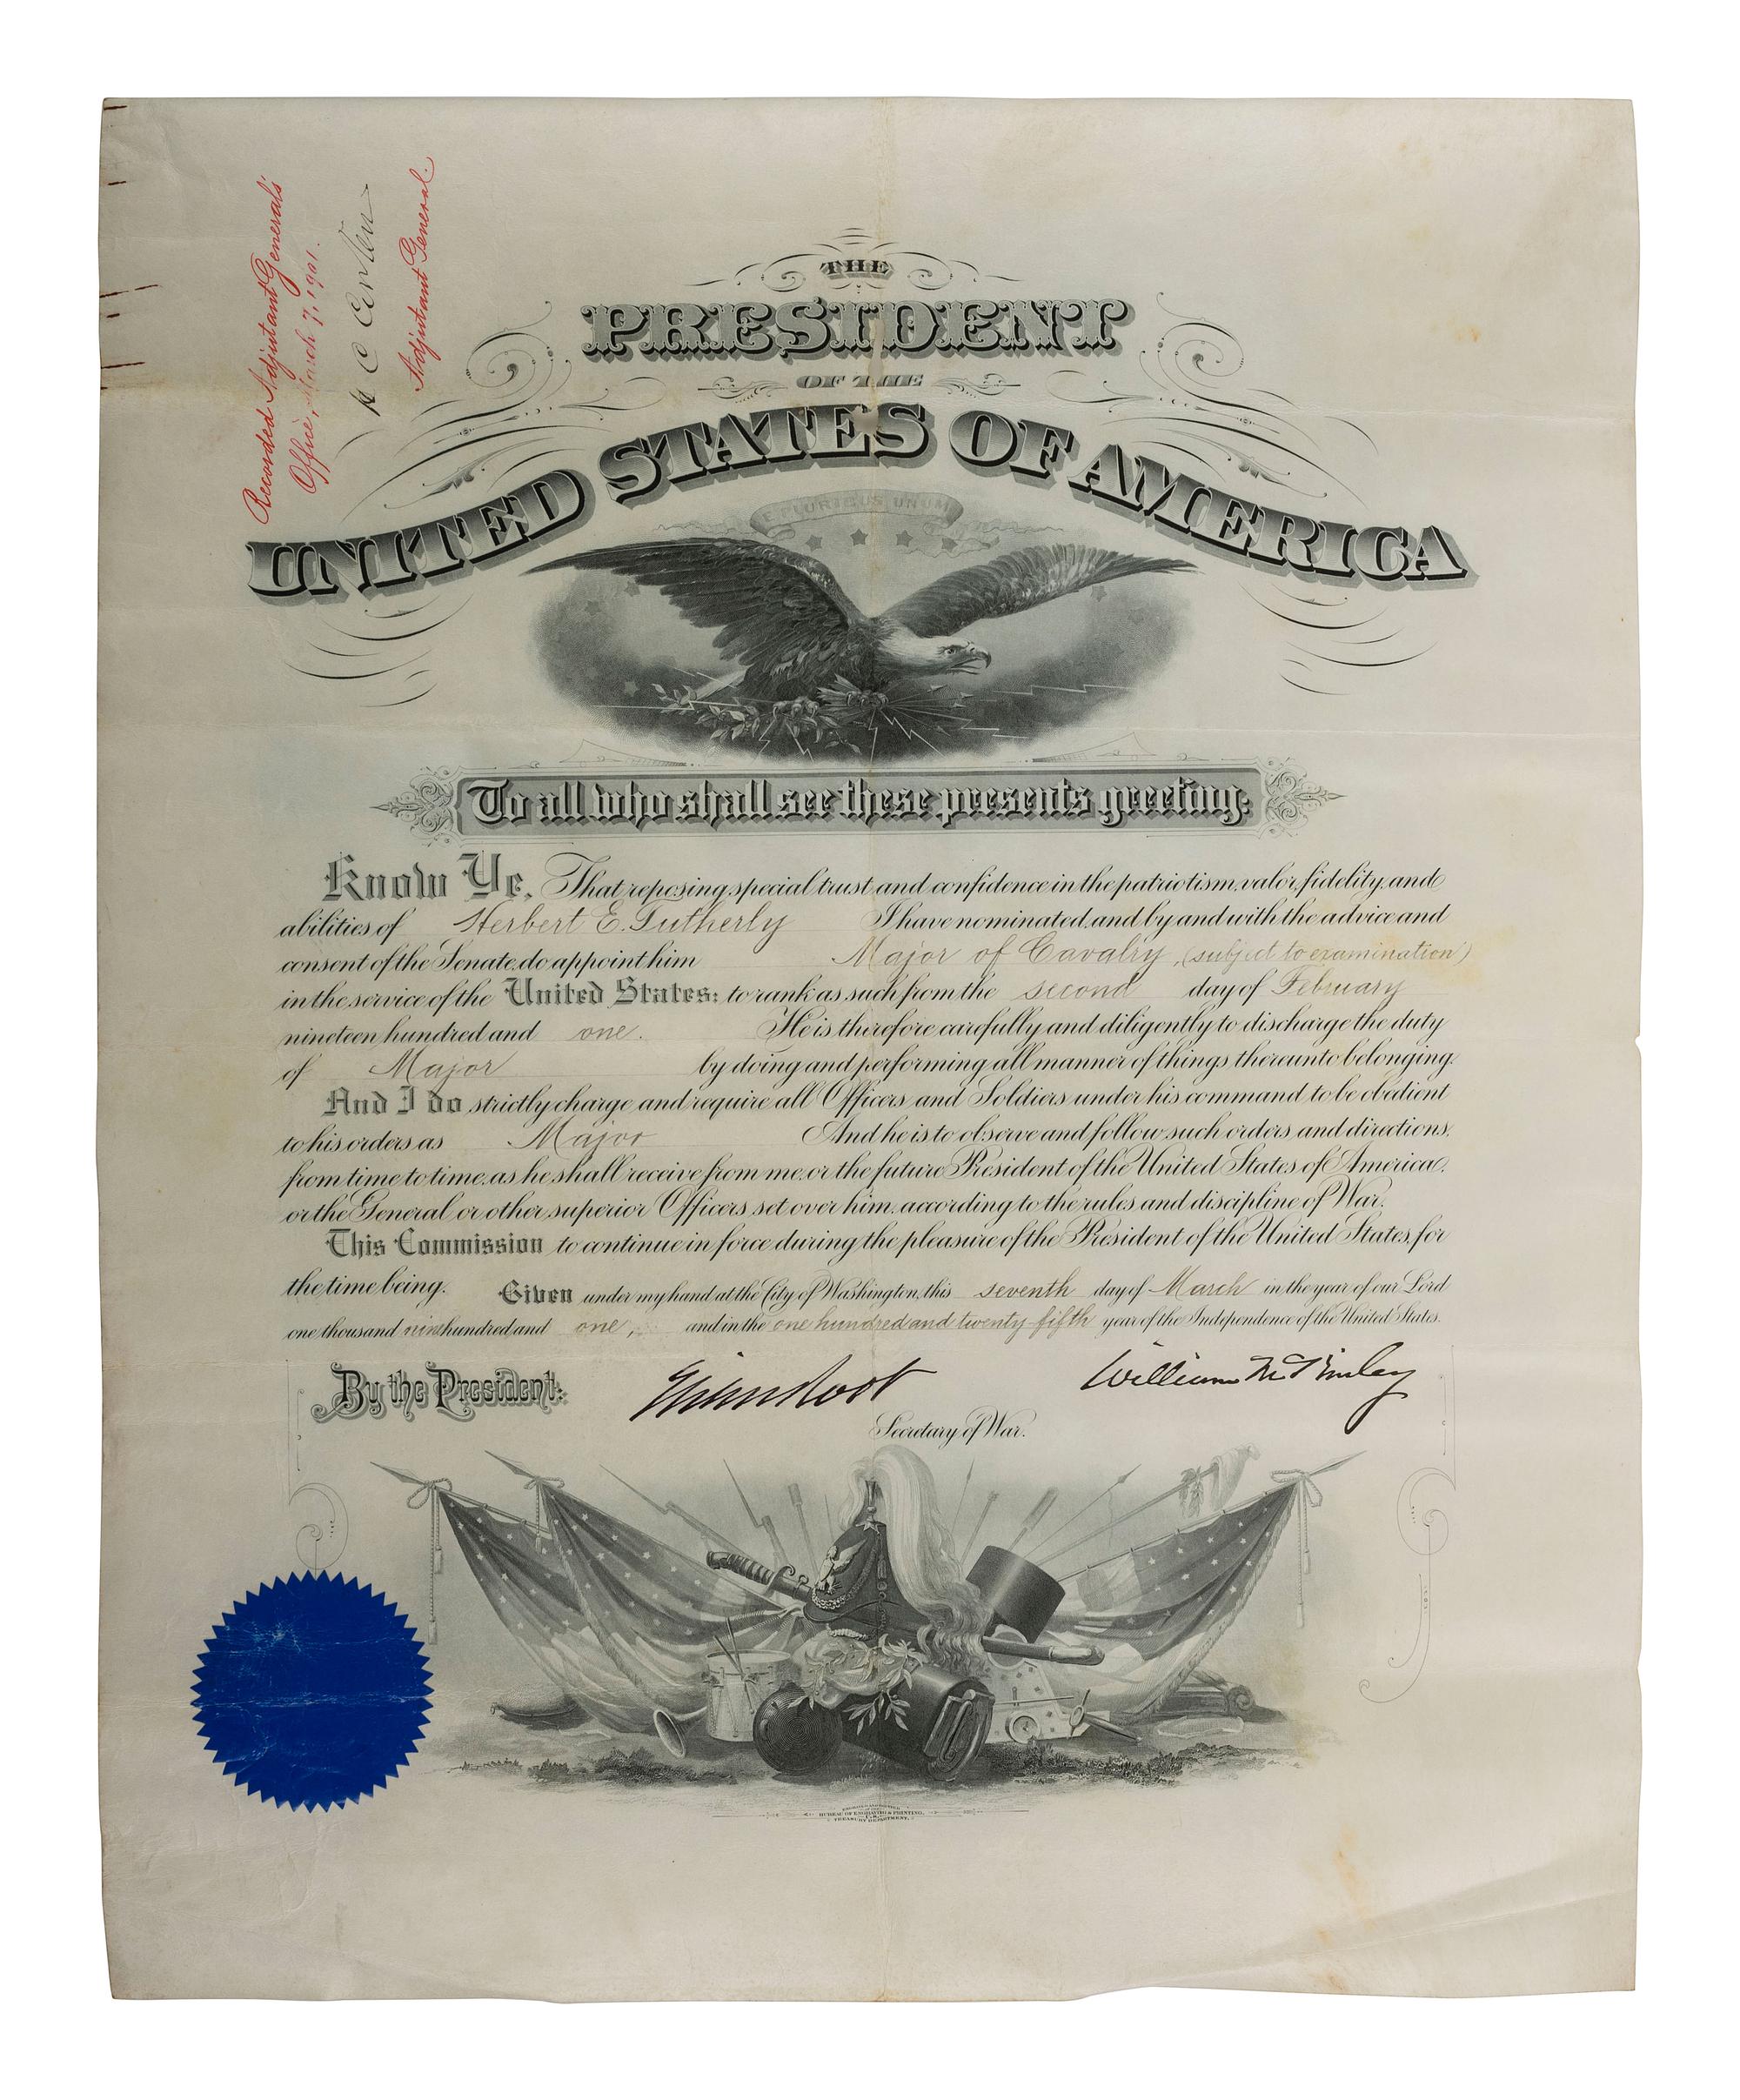 Recorded Adjutant General's
Office, March 7, 1901.
H C Corbin
Adjutant General.
THE
PRESIDENT
OF THE
UNITED STATES OF AMERICA
E PLURIBUS UNUM
To all who shall see these presents greeting:
Know Ye, That reposing special trust and confidence in the patriotism, valor, fidelity and
abilities of Herbert E. Tutherly I have nominated, and by and with the advice and
consent of the Senate, do appoint him Major of Cavalry, (subject to examination)
in the service of the United States: to rank as such from the second day of February
nineteen hundred and one. He is therefore carefully and diligently to discharge the duty
of Major by doing and performing all manner of things thereunto belonging.
And I do strictly charge and require all Officers and Soldiers under his command to be obedient
to his orders as Major And he is to observe and follow such orders and directions,
from time to time, as he shall receive from me, or the future President of the United States of America,
or the General or other superior Officers set over him, according to the rules and discipline of War.
This Commission to continue in force during the pleasure of the President of the United States, for
the time being. Given under my hand at the City of Washington, this seventh day of March in the year of our Lord
one thousand nine hundred and one, and in the one hundred and twenty-fifth year of the Independence of the United States.
By the President:
Elihu Root
William McKinley
Secretary of War.
BUREAU OF ENGRAVING & PRINTING,
TREASURY DEPARTMENT.